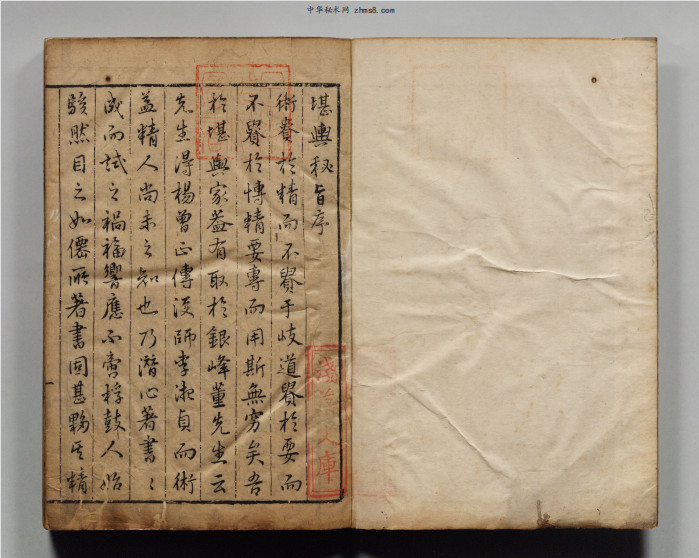 中华秘术网 zhms8.com
堪輿秘旨序
術貴於精而不貴于歧道貴於要而
不貴於博精要專而用斯無窮矣吾
於堪輿家蓋有取於銀峰董先生云
先生得楊曾正傳後師李淑貞而術
益精人尚未之知也乃潛心著書〻
成而試之禍福響應不啻桴鼓人始
駭然目之如僊所著書固甚夥其精
文庫